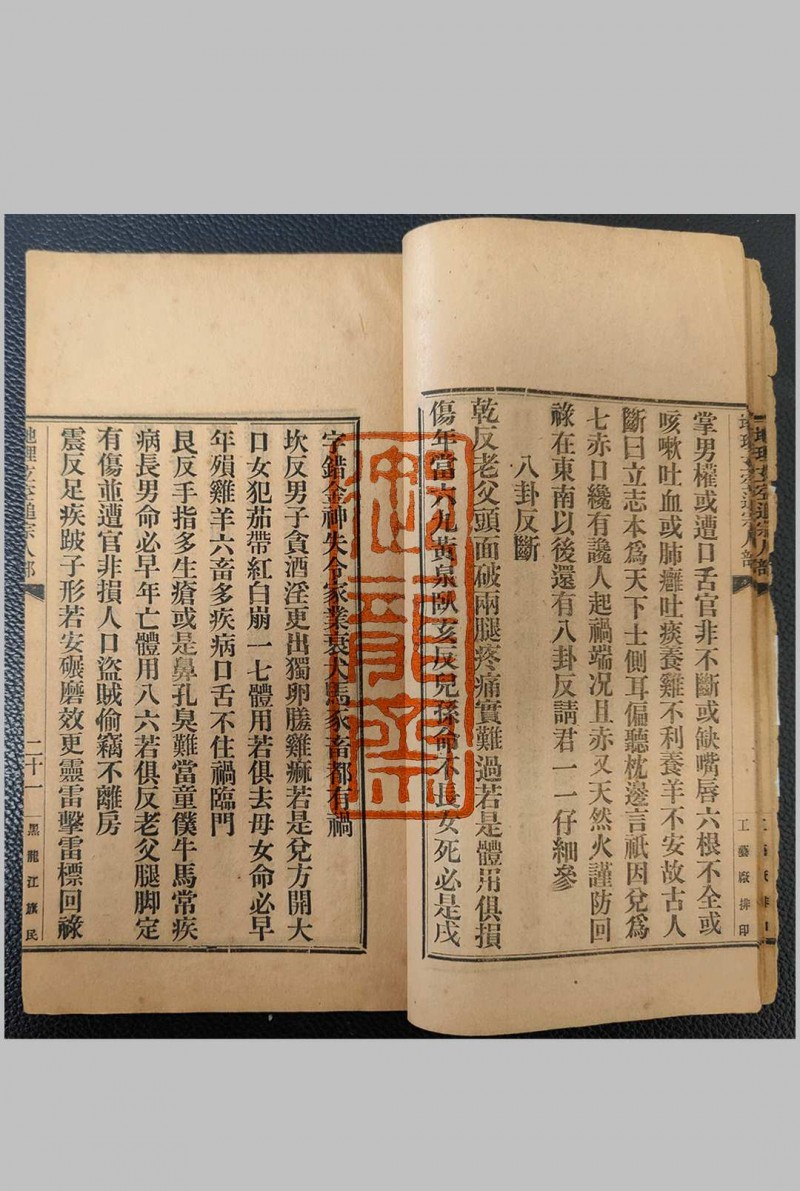 掌男權或遭口舌官非不斷或缺嘴唇六根不全或
咳嗽吐血或肺癰吐痰養雞不利養羊不安故古人
斷曰立志本爲天下士側耳偏聽枕邊言祇因兌爲
七赤口纔有讒人起禍端况且赤又天然火謹防回
祿在東南以後還有八卦反請君一一仔細參
八卦反斷
乾反老父頭面破兩腿疼痛實難過若是體用俱損
傷年當六九黃泉臥亥反兒孫命不長女死必是戌
字錯金神失令家業衰犬馬家畜都有禍
坎反男子貪酒淫更出獨卵騰雞痲若是兌方開大
口女犯茄帶紅白崩一七體用若俱去母女命必早
年殞雞羊六畜多疾病口舌不住禍臨門
艮反手指多生瘡或是鼻孔臭難當童僕牛馬常疾
病長男命必早年亡體用八六若俱反老父腿脚定
有傷並遭官非損人口盜賊偷竊不離房
震反足疾跛子形若安碾磨效更靈雷擊雷標回祿
工藝廠排印
二十一
黑龍江旗民